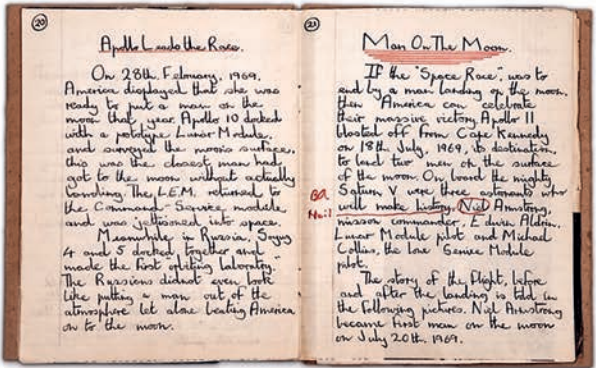 20
Apollo Leads the Race.
On 28th. February, 1969,
America displayed that she was
ready to put a man on the
moon that year. Apollo 10 docked
with a pototype Lunar Module,
and surveyed the moons surface,
this was the closest man had
got to the moon without actually
landing. The L.E.M. returned to
the Command-Service module
and was jettisoned into space.
Meanwhile in Russia, Soyuz
4 and 5 docked together and
made the first orbiting laboratry."
The Russians didnot even look
like putting a man out of the
atmosphere let alone beating America
on to the moon.
21
Man On The Moon.
If the "Space Race", was to
end by a man landing on the moon,
then America can celebrate
their massive victory. Apollo 11
blasted off from Cape Kennedy
on 18th July, 1969, its destination,
to land two men on the surface
of the moon. On board the mighty
Saturn V were three astonants who
will make history. Niel Armstrong,
Neil
mission commander, Edwin Aldrin,
Lunar Module pilot and Michael
Collins, the lone Service Module
pilot.
The story of the flight, before
and after the landing is told in
the following pictures. Niel Armstrong
became first man on the moon
on July 20th. 1969.